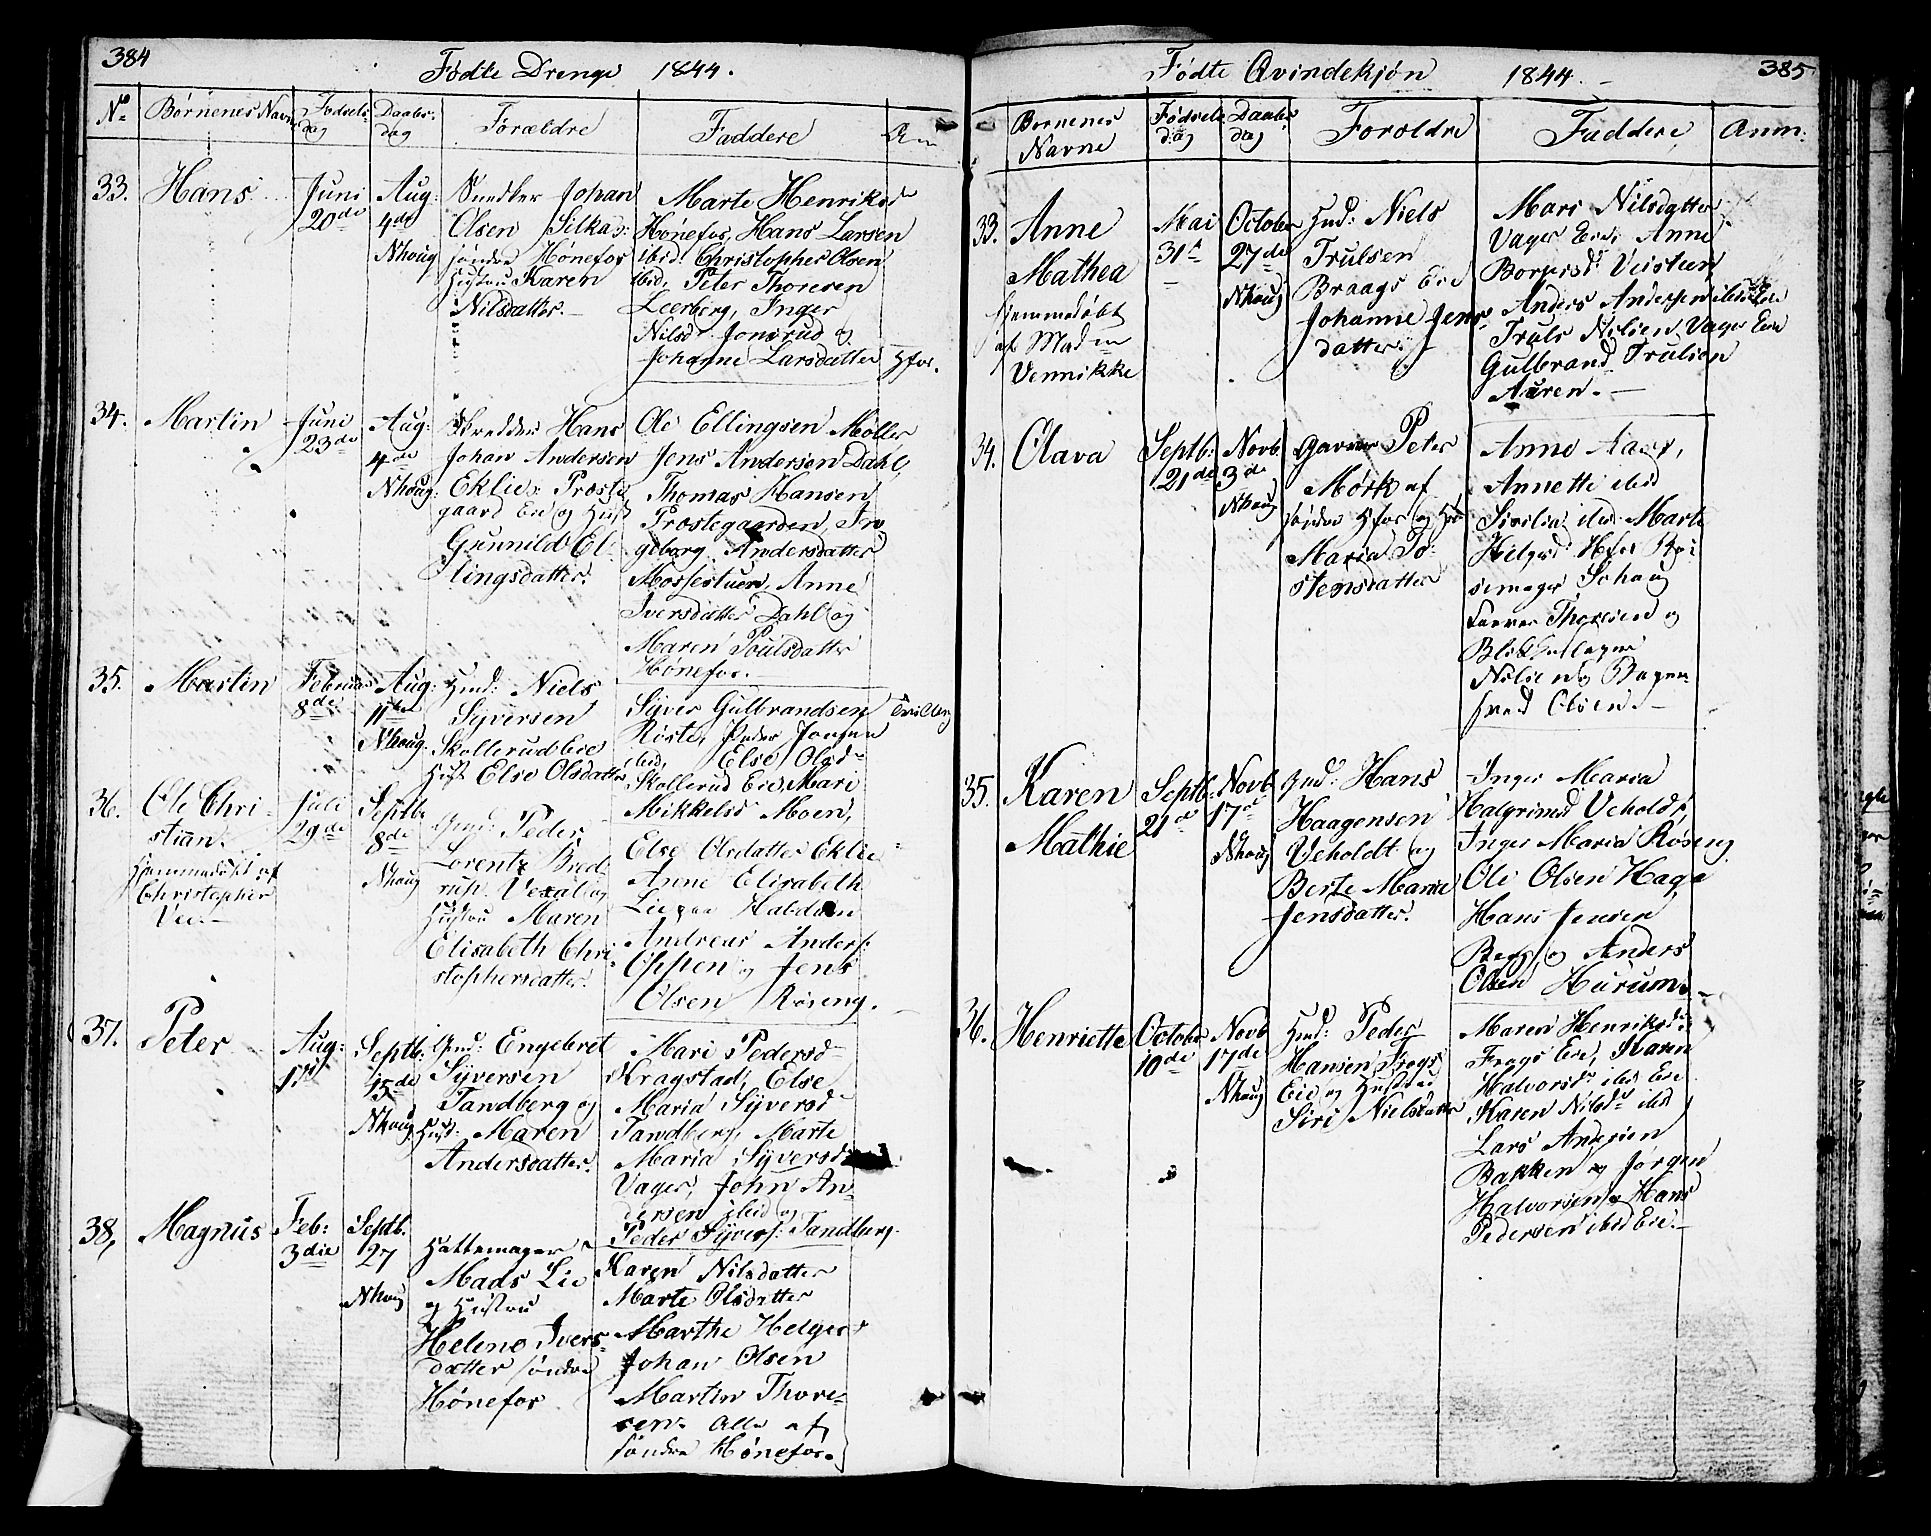 384
Fødte Drenge 1844.
No
Børnenes Navne
Fødsels
dag
Daabs
dag
Forældre
Faddere
An
33.
Hans
Juni
20de
Aug:
4de
Nhoug
Snedker Johan
Olsen
søndre Hønefos
Hustru Karen
Nilsdatter.
Marte Henriksd
Hønefos, Hans Larsen
ibid. Christopher Olsen
ibid, Peter Thoresen
Leerberg, Inger
Nilsd Jonsrud og
Johanne Larsdatter Hfos.
34.
Martin
Juni
23de
Aug:
4de
Nhoug:
Skredder Hans
Johan Andersen
Eklie Præste
gaard Eie og Hust
Gunnild El-
lingsdatter.
Ole Ellingsen Møller
Jens Andersen Dahl,
Thomas Hansen
Præstegaarden, In
geborg Andersdatter
Mossestuen, Anne
Iversdatter Dahl og
Maren Poulsdatter
Hønefos.
35.
Martin
Februar
8de
Aug:
11te
Nhoug.
Hmd: Niels
Syversen
Skollerud Eie
Hust Else Olsdatter
Syver Gulbrandsen
Røste, Peder Jonsen
ibid, Else Olsd
Skollerud Eie, Mari
Mikkelsd Moen,
Tvilling
36.
Ole Chri-
stian.
Hjemmedøbt af
Christopher
Vee.
Juli
29de
Septb.
8de
Nhoug
Gmd: Peder
Lorentz Bred
rup. Vexal og
Hustru Maren
Elisabeth Chri-
stophersdatter.
Else Olsdatter Eklie
Anne Elisabeth
Lie
Andreas Anders:
Oppen og Jens
Olsen Røseng.
37.
Peter
Aug:
17
Septb:
15de
Nhoug
Gmd: Engebret
Syversen
Tandberg og
Hust: Maren
Andersdatter.
Mari Pedersd
Kragstad, Else
Maria Syversd
Tandberg, Marte
Maria Syversd
Vager, John An-
dersen ibid og
Peder Syvers: Tandberg.
38,
Magnus
Feb:
3die
Septb.
27
Nhoug
Hattemager
Mads Lie
og Hustru
Helene Ivers-
datter søndre
Hønefos
Karen Nilsdatter
Marte Olsdatter
Marthe Helges
Johan Olsen
Martin Thore-
sen. Alle af
søndre Hønefos.
385
Fødte Qvindekjøn 1844.
Børnenes
Navne
Fødsels
dag
Daabs
dag
Forældre
Faddere
Anm:
33.
Anne
Mathea
hjemmedøbt
af Madm
Vennikke
Mai
31t
October
27de
Nhoug
Hmd: Niels
Trulsen
Braags Eie
Johanne Jens-
datter.
Mari Nilsdatter
Vager Eie, Anne
Borgersd: Veisteen
Anders Andersen ibid Eie
Truls Nilsen Vager Eie
Gulbrand Trulsen
Auren.
34.
Olava
Septb:
21de
Novb.
3de
Nhoug
Garver Peter
Mørk af
søndre Hfos og Hu
Maria To-
stensdatter
Anne Aas,
Annette ibid
ibid Marte
Helgesd Hfos
semager Schoug
Farver Thoresen og
Blikkenslager
Nilsen og
Olsen.
35.
Karen
Mathie
Septb:
21d
Novb.
17d
Nhoug
Gmd: Hans
Haagensen
Veholdt og
Berte Marie
Jensdatter.
Inger Maria
Halgrimsd Veholdt,
Inger Maria Røseng
Ole Olsen Haga
Hans Jensen
Berg og Anders
Olsen Hurum.
36.
Henriette
October
10de
Novb
17de
Nhoug
Hmd: Peder
Hansen Frogs
Eie og Hustru
Siri Nielsdatter
Maren Henriksd
Frogs Eie, Karen
Halvorsd. ibid Eie
Karen Nilsd ibid
Lars Andersen
Bakken og Jørgen
Halvorsen og Hans
Pedersen ibid Eie.